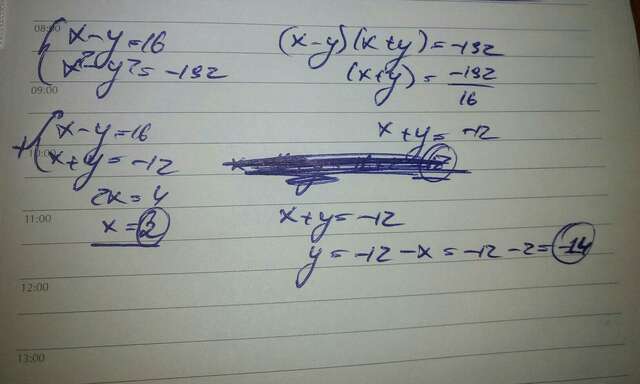 08:00
x-y=16
x²-y²=-192
(x-y)(x+y)=-192
(x+y)=-192/16
09:00
x+y=-12
+
x-y=16
x+y=-12
10:00
2x=4
x=2
11:00
x+y=-12
y=-12-x=-12-2=-14
12:00
13:00